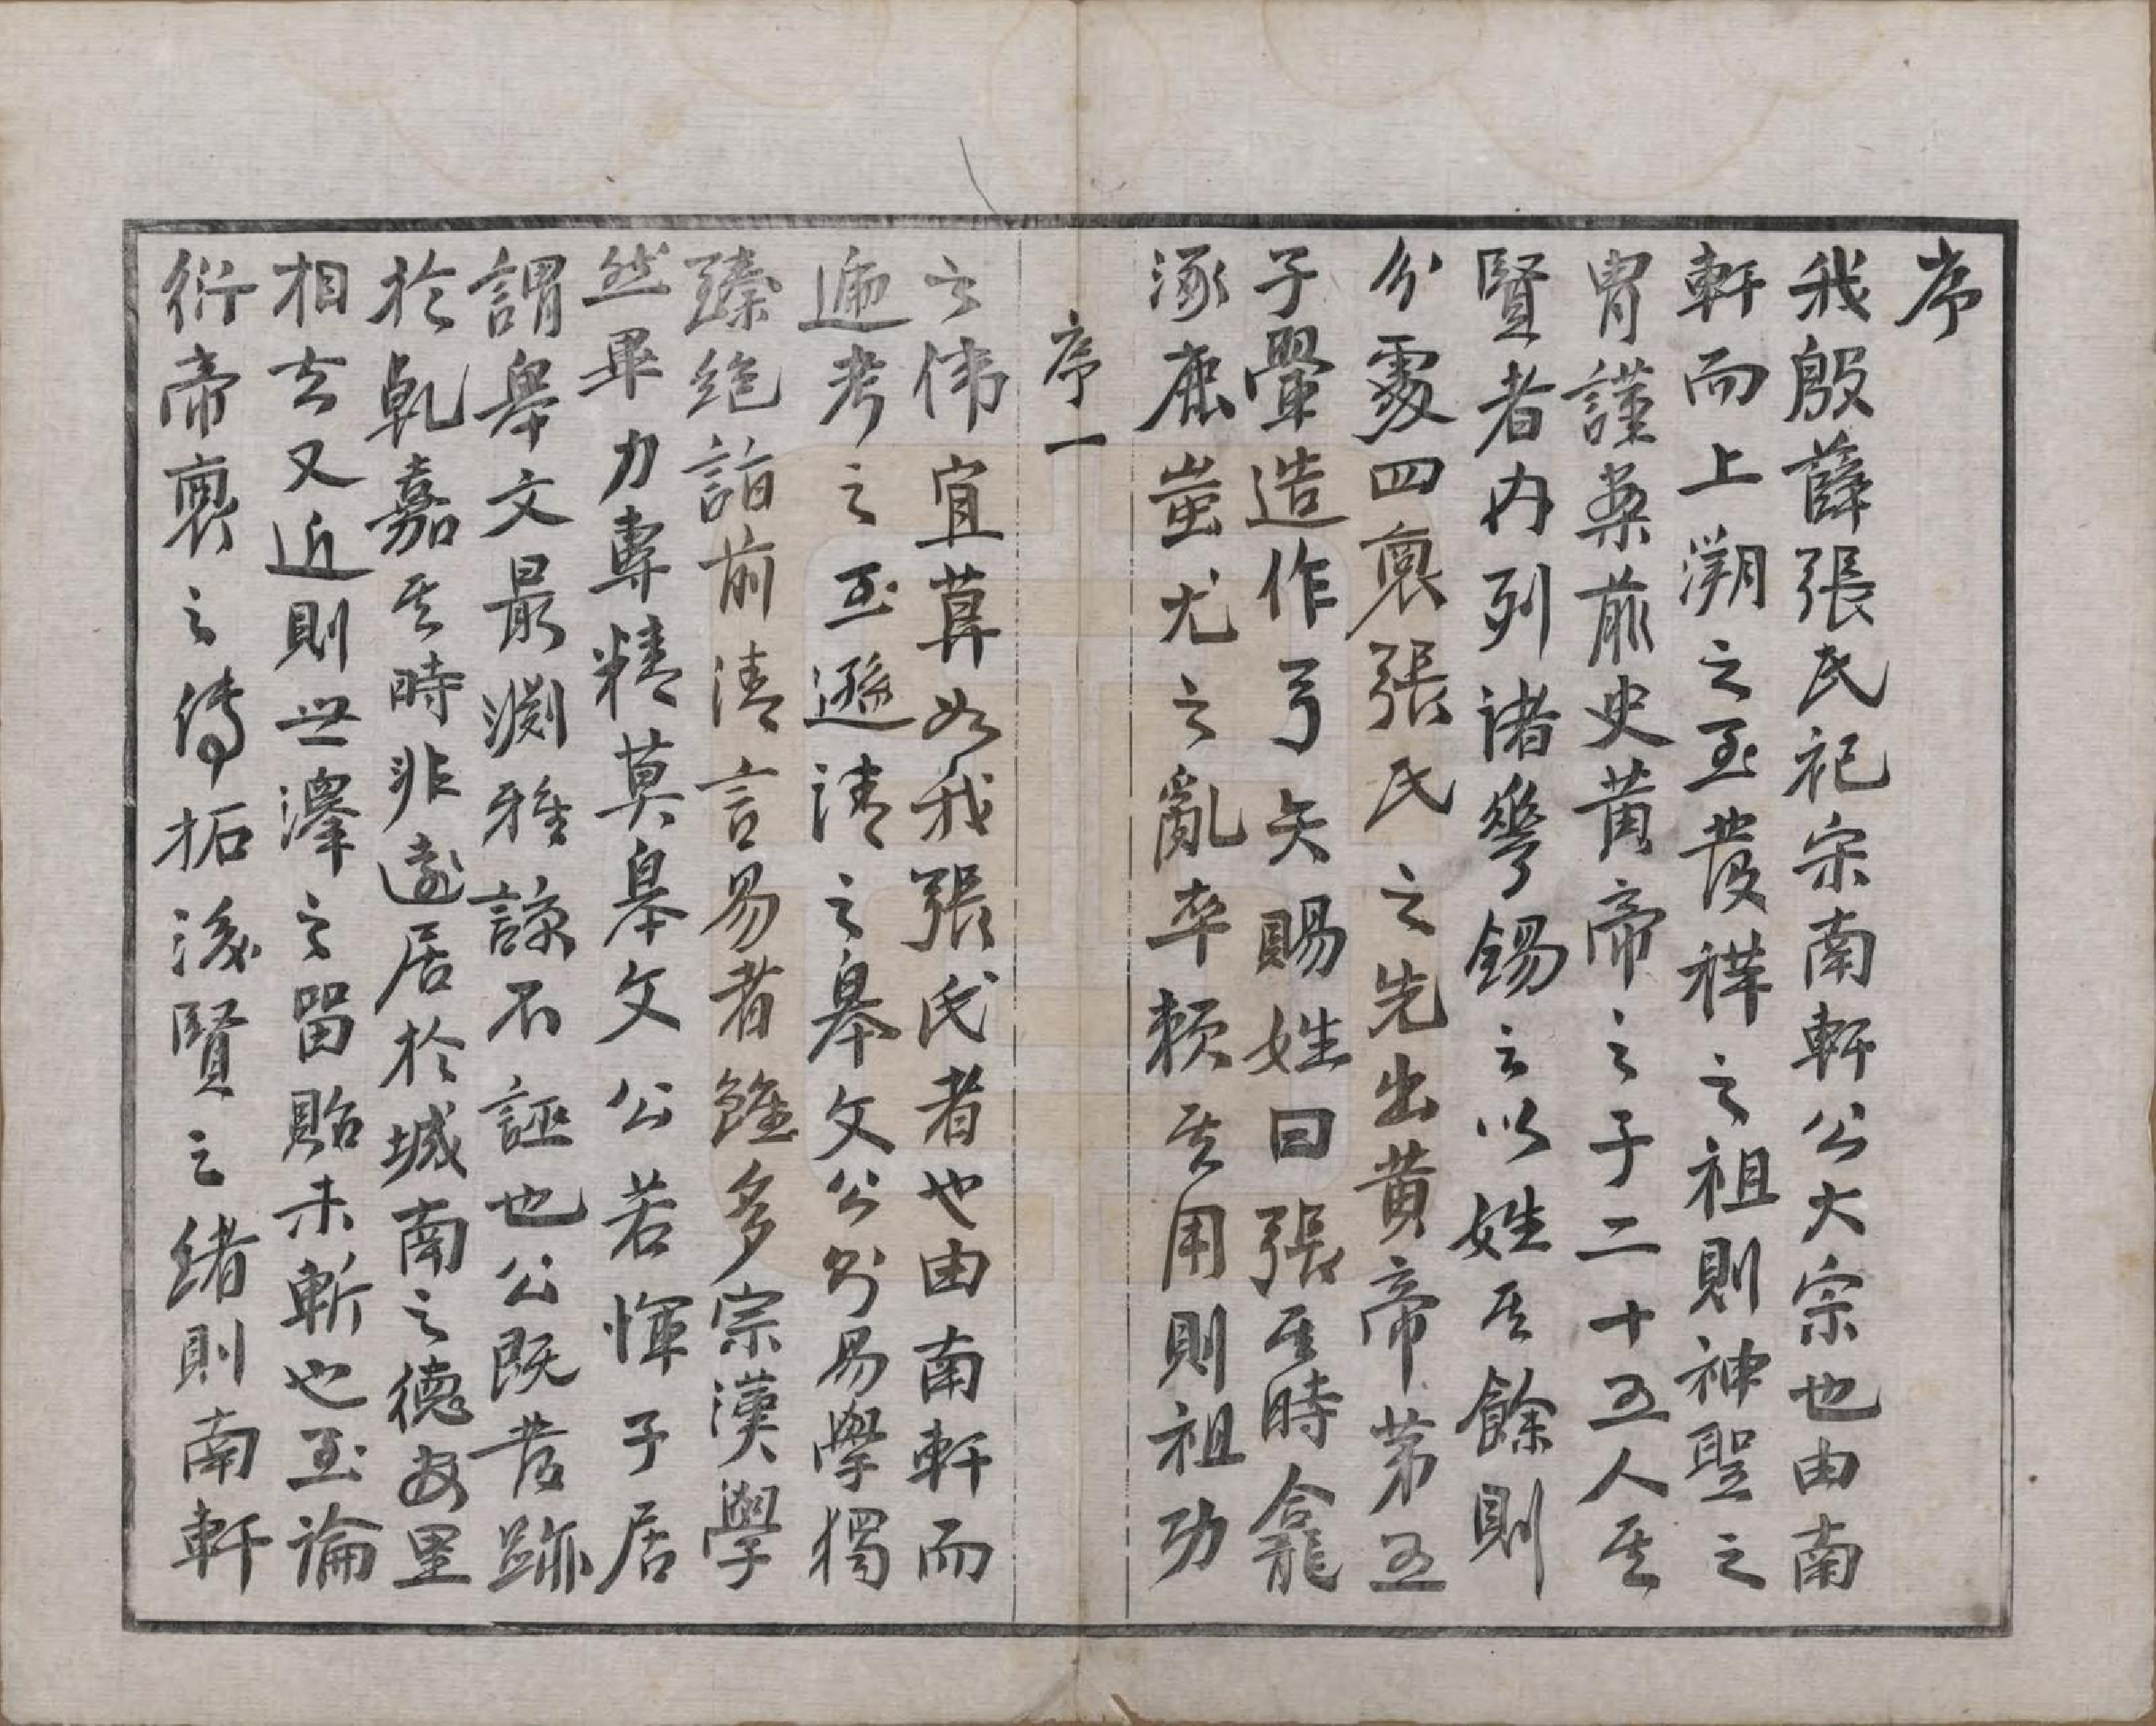 序
我殷薛張氏祀宗南軒公大宗也由南
軒而上溯之至發祥之祖則神聖之
胄謹案前史黃帝之子二十五人其
賢者內列諸華錫之以姓其餘則
分處四裔張氏之先出黃帝第五
子翬造作弓矢賜姓曰張其時龕
涿鹿蚩尤之亂率賴其用則祖功
序一
之偉宜莫如我張氏者也由南軒而
遞考之至遜清之皋文公於易學獨
臻絕詣前清言易者雖多宗漢學
然畢力專精莫皋文公若惲子居
謂皋文最淵雅諒不誣也公既發跡
於乾嘉其時非遠居於城南之德安里
相去又近則世澤之留貽未斬也至論
衍帝裔之傳拓後賢之緒則南軒